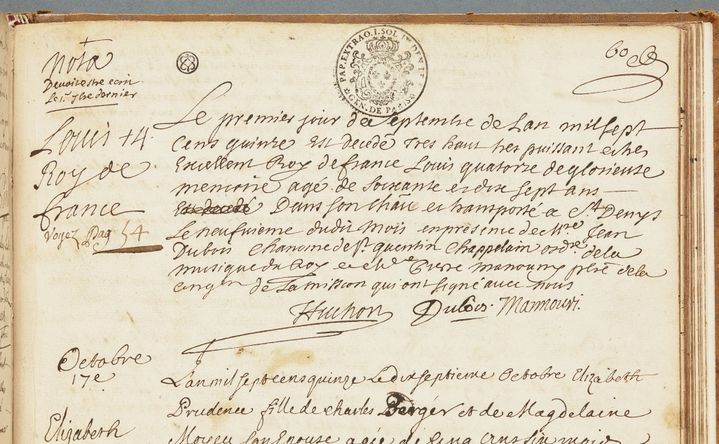 60
PAP. EXTRAO. I. SOL
GEN. DE PARIS
Nota
Devoit estre ecrit
le 1er 7bre dernier
Louis 14
Roy de
france
Voyez Pag 54
Le premier jour de Septembre de Lan mil sept
cens quinze Est decedé tres haut tres puissant et tres
Excellent Roy de france Louis quatorze de glorieuse
memoire agé de soixante et dix sept ans
Est decedé Dans son chau et transporté a St Denys
Le neufuieme dudit mois en presence de Mre Jean
Dubois Chanoine de St quentin Chappelain ordre de la
musique du Roy et de Mre Pierre manoury prestre de la
congon de La mission qui ont signé avec nous
Huchon Dubois. Mannoury.
Octobre
17e
Elizabeth
Lan mil sept cens quinze Le dix septieme Octobre Elizabeth
Prudence fille de charles Berger et de Magdelaine
son Epouse agée de cinq ans six mois